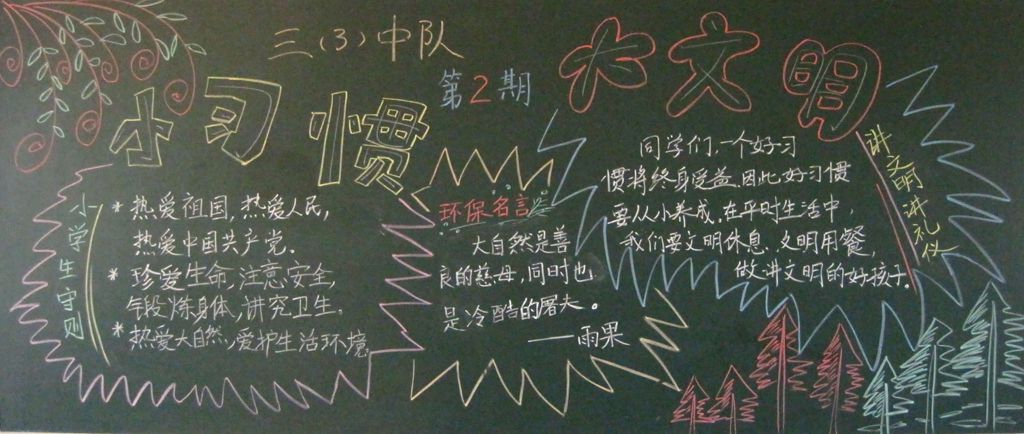 三(3)中队
第2期
小习惯
大文明
小学生守则
* 热爱祖国,热爱人民,
热爱中国共产党.
* 珍爱生命,注意安全,
锻炼身体,讲究卫生.
* 热爱大自然,爱护生活环境
环保名言
大自然是善
良的慈母,同时也
是冷酷的屠夫。
——雨果
同学们,一个好习
惯将终身受益.因此,好习惯
要从小养成.在平时生活中,
我们要文明休息.文明用餐,
做讲文明的好孩子.
讲文明讲礼仪